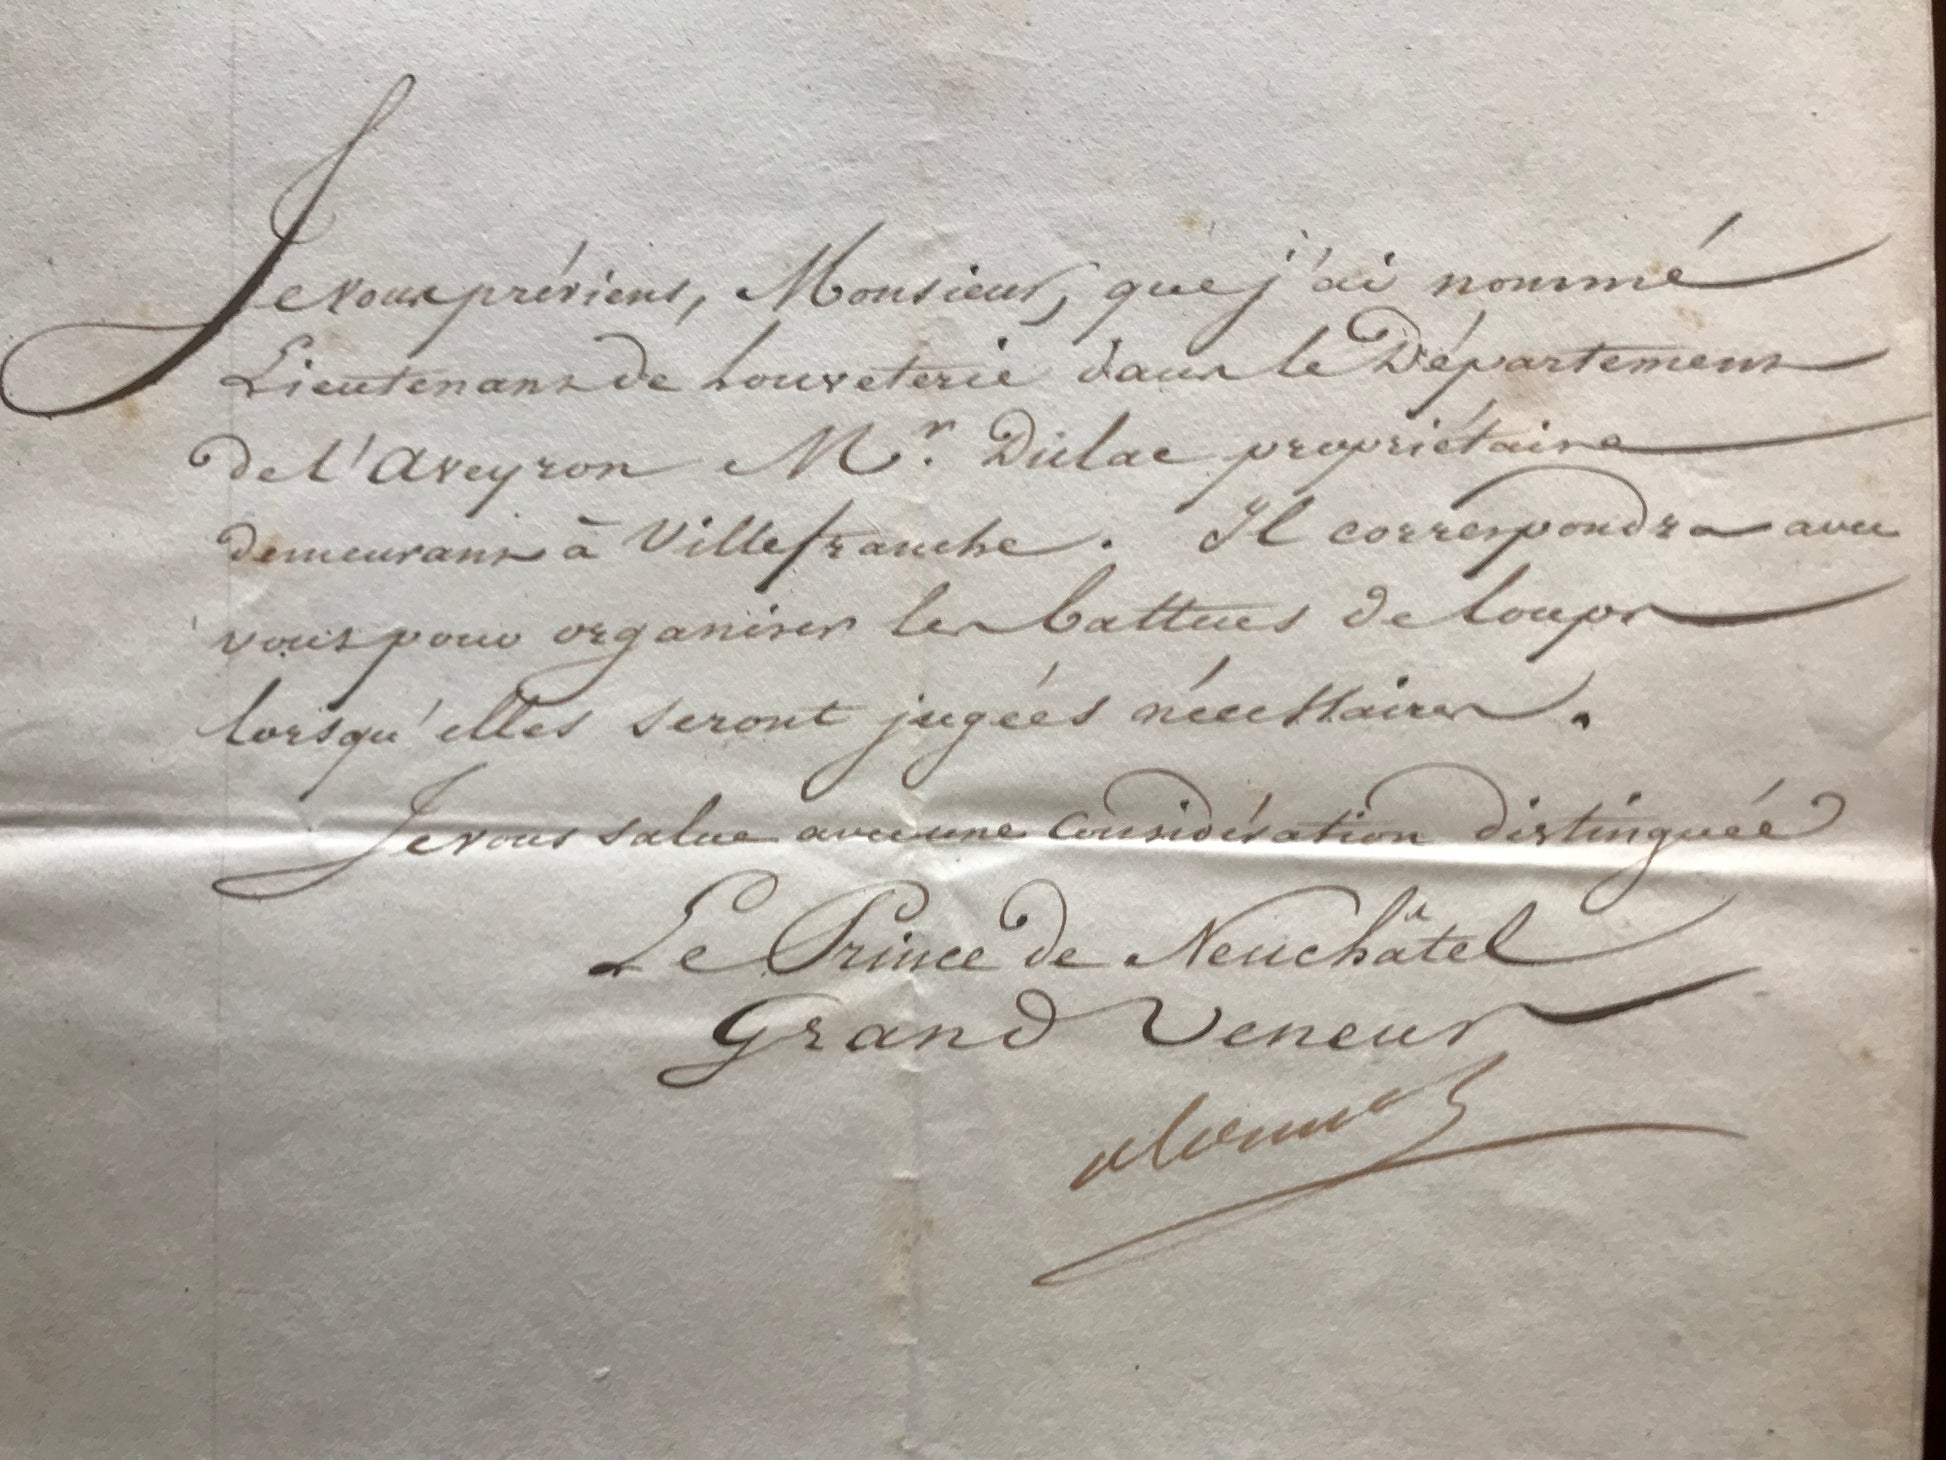 Je vous préviens, Monsieur, que j'ai nommé
Lieutenant de Louveterie dans le Département
de l'Aveyron Mr. Dulac propriétaire
demeurant à Villefranche. Il correspondra avec
vous pour organiser les battues de loups
lorsqu'elles seront jugées nécessaires.
Je vous salue avec une Considération distinguée
Le Prince de Neuchâtel
Grand Veneur